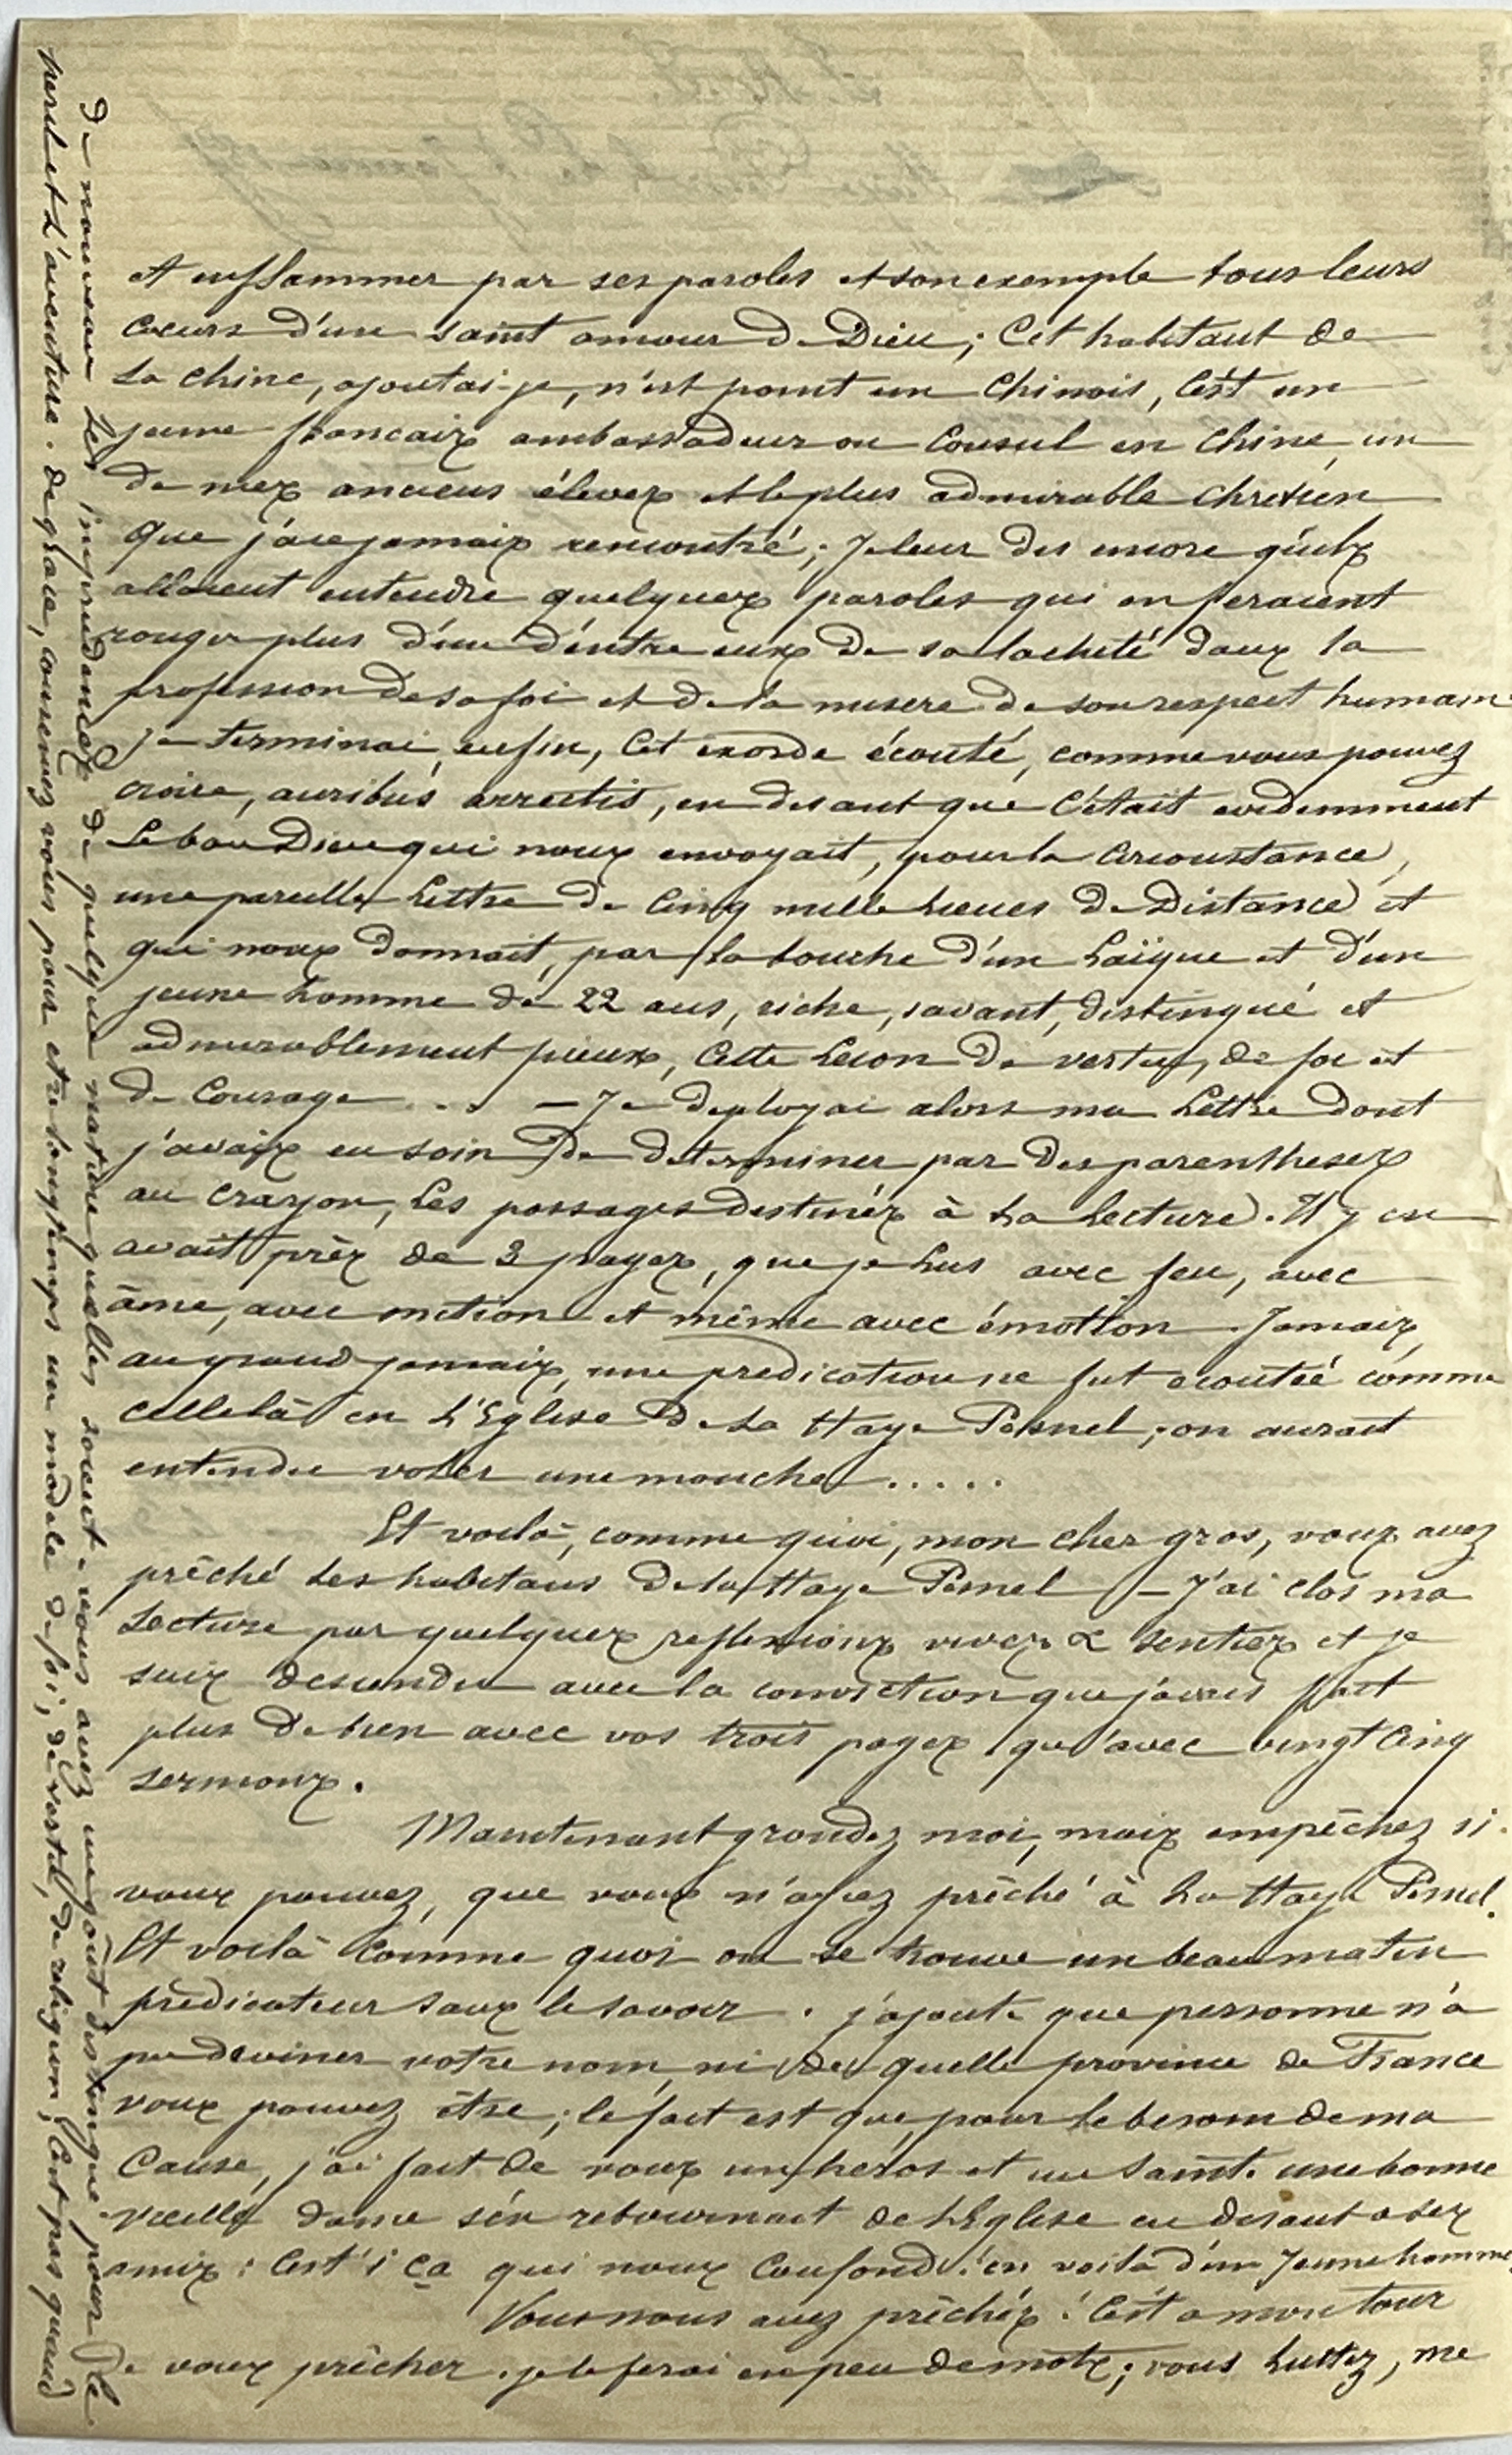 et enflammer par ses paroles et son exemple tous leurs
coeurs d'un saint amour de Dieu; Cet habitant de
la chine, ajoutai-je, n'est point un Chinois, C'est un
jeune francais ambassadeur ou Consul en Chine, un
de mes anciens éleves et le plus admirable chretien
que j'aie jamais rencontré; Je leur dis encore qu'ils
allaient entendre quelques paroles qui en feraient
rougir plus d'un d'entre eux de sa lacheté dans la
profession de sa foi et de la misere de son respect humain.
je terminai, enfin, Cet exorde écouté, comme vous pouvez
croire, auribus arrectis, en disant que C'était evidemment
Le bon Dieu qui nous envoyait, pour la Circonstance,
une pareille Lettre de Cinq mille Lieues de Distance et
qui nous donnait, par la bouche d'un Laïque et d'un
jeune homme de 22 ans, riche, savant, distingué et
admirablement pieux, Cette Lecon de vertu, de foi et
de Courage . . . — Je deployai alors ma Lettre dont
j'avais eu soin de determiner par des parentheses
au crayon, Les passages destinés à La Lecture. Il y en
avait près de 3 pages, que je Lus avec feu, avec
âme, avec onction et même avec émotion. Jamais,
au grand jamais, une predication ne fut ecoutée comme
celle là en L'Eglise de La Haye Pesnel; on aurait
entendu voler une mouche . . . . .
Et voilà, comme quoi, mon cher gros, vous avez
prêché Les habitans de la Haye Pesnel — J'ai clos ma
Lecture par quelques reflexions vives & senties et je
suis descendu avec la conviction que j'avais fait
plus de bien avec vos trois pages qu'avec vingt Cinq
sermons.
Maintenant grondez moi, mais empêchez si
vous pouvez, que vous n'ayez prêché à La Haye Pesnel.
Et voilà Comme quoi on se trouve un beau matin
prédicateur sans le savoir. j'ajoute que personne n'a
pu deviner votre nom, ni de quelle province de France
vous pouvez être; le fait est que, pour le besoin de ma
Cause, j'ai fait de vous un heros et un Saint. une bonne
vieille dame s'en retournait de L'Eglise en disant a ses
amis: C'est i ça qui nous Confond! en voila d'un Jeune homme
Vous nous avez prêchés! C'est a mon tour
de vous prêcher. je le ferai en peu de mots; vous Luttez, me
de nouveau Les imprudences de quelque nature qu'elles soient. vous avez un goût distingué pour le
peril et l'aventure. de grace, conservez vous pour etre longtemps un modele de foi, de vertu, de religion; C'est pas quand